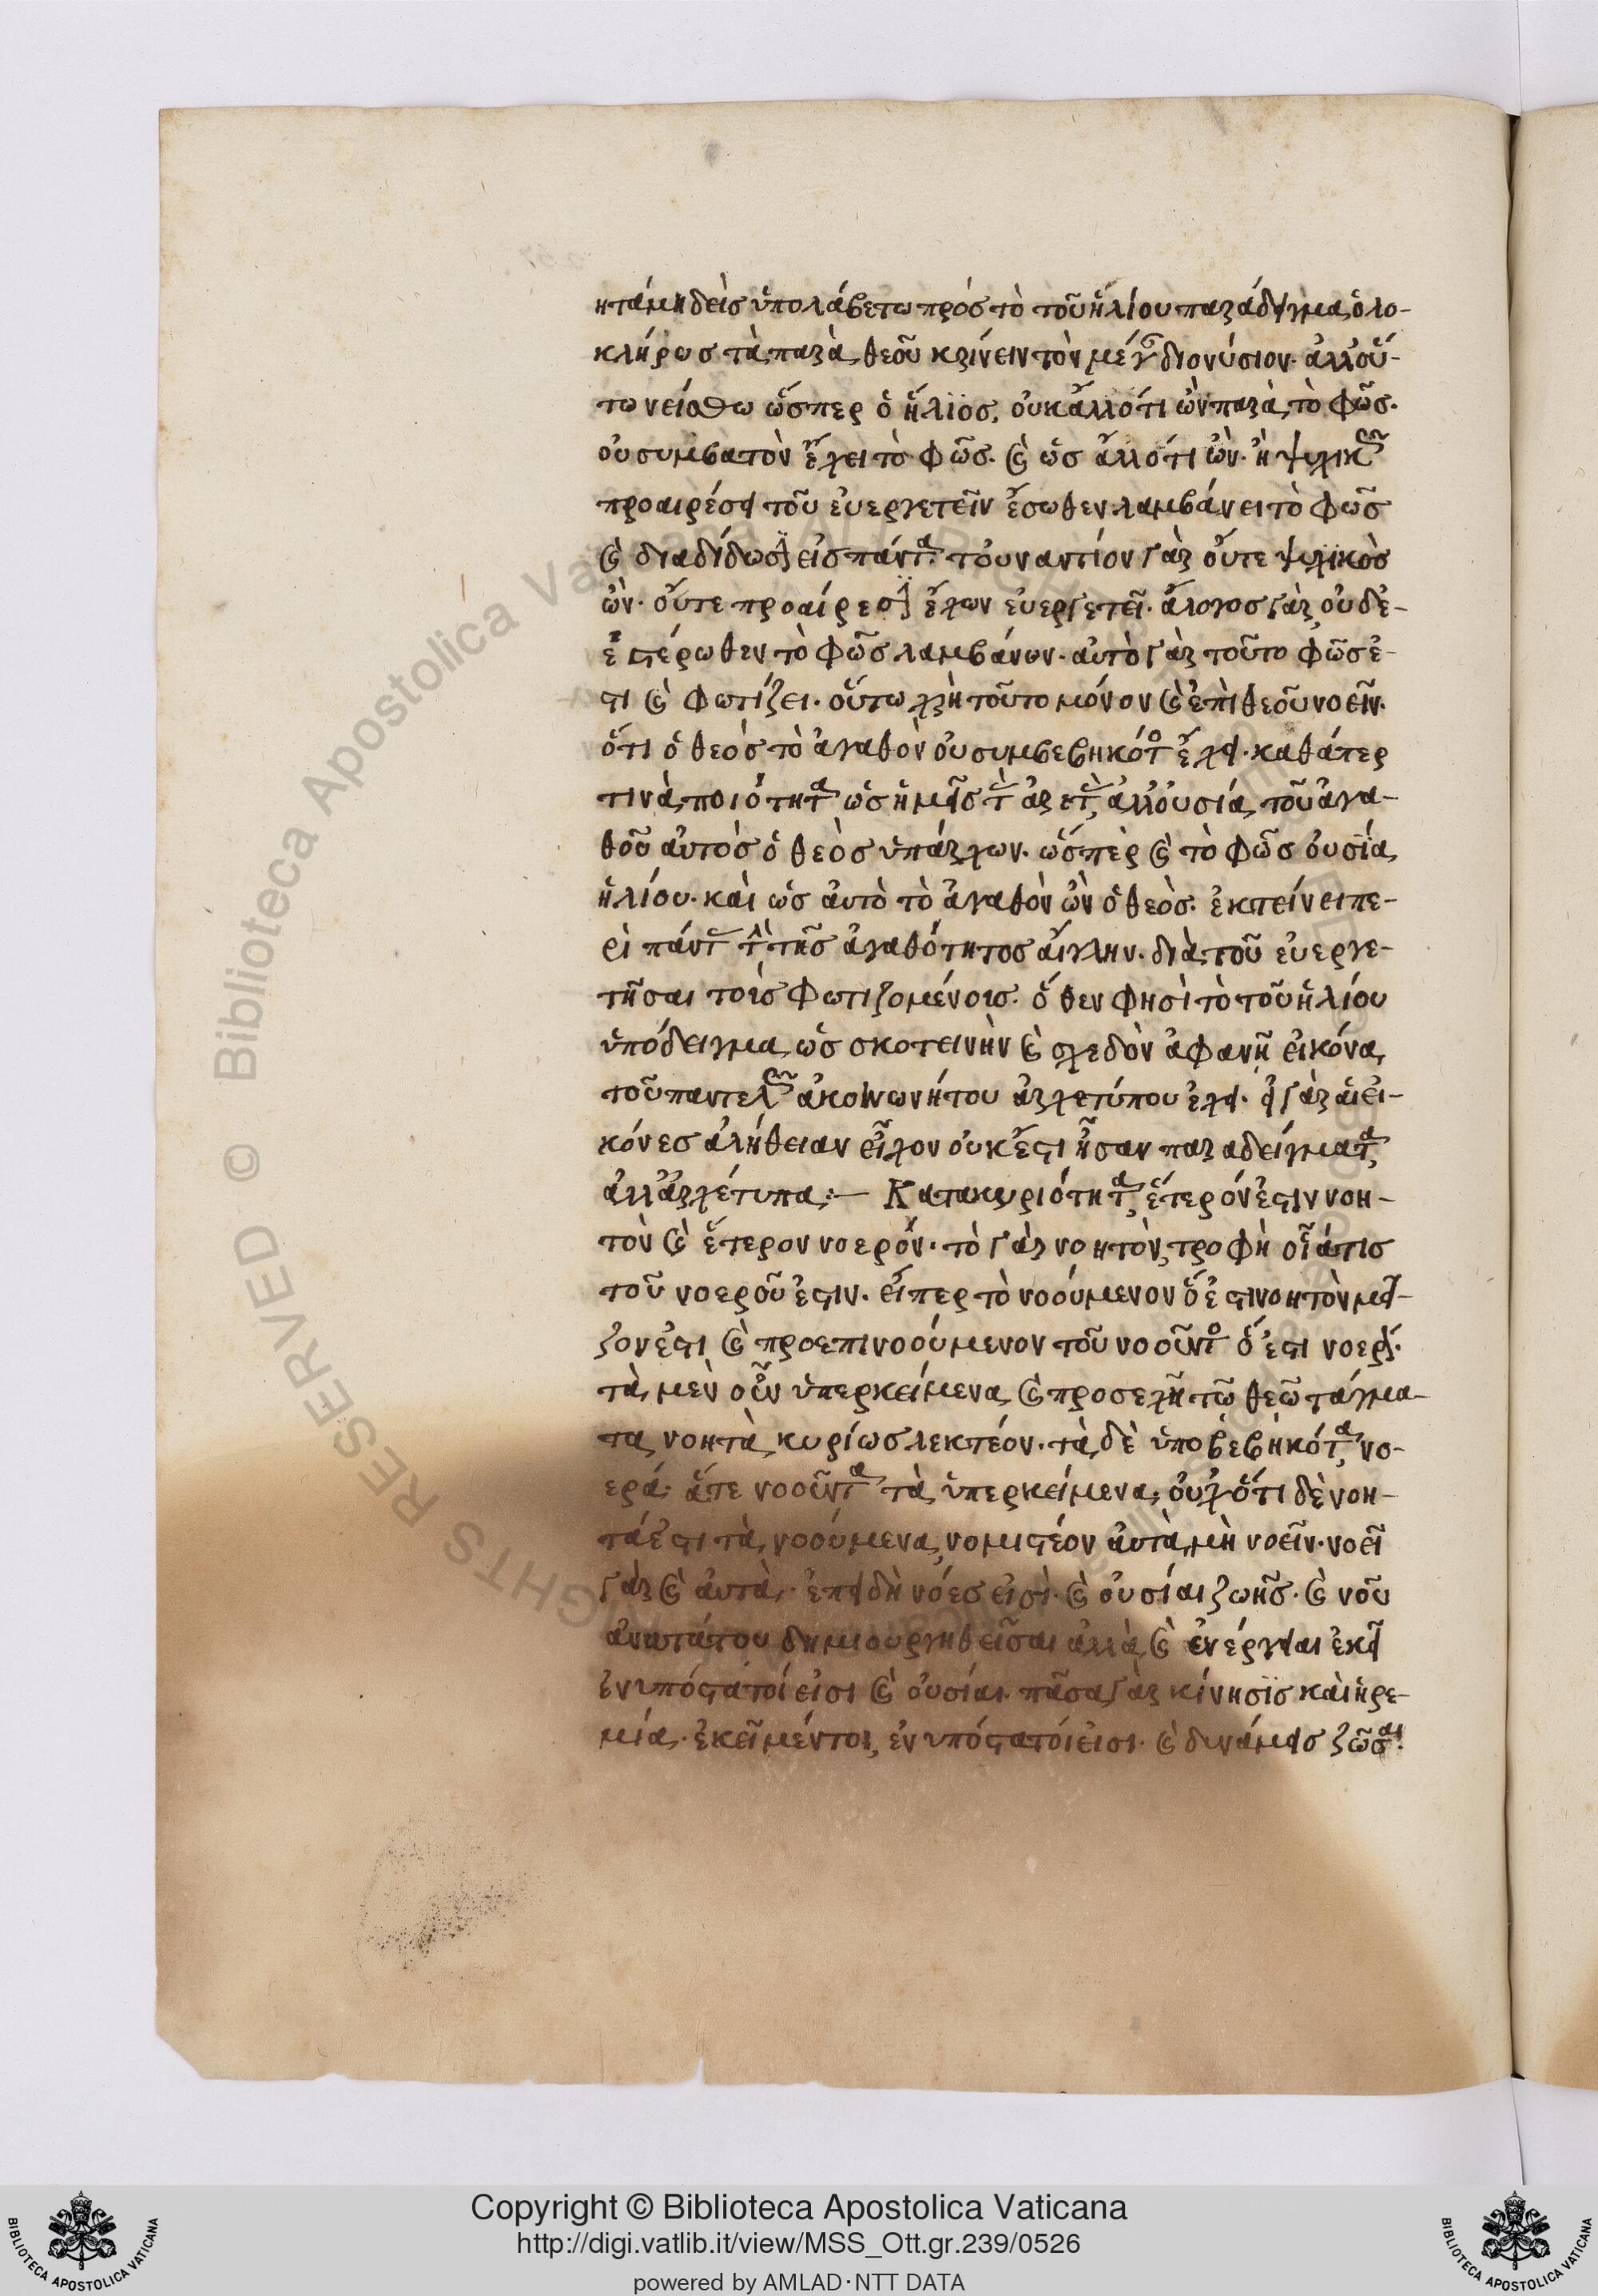 ητά μηδεὶς ὑπολάβετω πρὸς τὸ τοῦ ἡλίου παράδειγμα, ὁλο-
κλήρως τὰ παρὰ θεοῦ κρίνειν τὸν μέγ διονύσιον· ἀλλ οὕ-
τω νείσθω ὥσπερ ὁ ἥλϊος, οὐκ ἄλλό τι ὢν παρὰ τὸ φῶς·
οὐ συμβατὸν ἔχει τὸ φῶς· καὶ ὡς ἄλλό τι ὢν· ἢ ψυχικῶς
προαιρέσει τοῦ εὐεργετεῖν ἔσωθεν λαμβάνει τὸ φῶς
καὶ διαδίδωσιν εἰς πάντα· τουναντίον γὰρ οὔτε ψυχϊκὸς
ὢν· οὔτε προαίρεσιν ἔχων εὐεργετεῖ· ἄλογος γὰρ, οὐδὲ-
ἑτέρωθεν τὸ φῶς λαμβάνων· αὐτὸ γὰρ τοῦτο φῶς ἐ-
στι καὶ φωτίζει· οὕτω χρὴ τοῦτο μόνον καὶ ἐπὶ θεοῦ νοεῖν·
ὅτι ὁ θεὸς τὸ ἀγαθὸν οὐ συμβεβηκότως ἔχει· καθάπερ
τινὰ ποιότητα ὡς ἡμεῖς τὰς ἀρετὰς, ἀλλ οὐσία τοῦ ἀγα-
θοῦ αὐτὸς ὁ θεὸς ὑπάρχων· ὥσπερ καὶ τὸ φῶς οὐσϊα
ἡλίου· καὶ ὡς αὐτὸ τὸ ἀγαθὸν ὢν ὁ θεὸς· ἐκτείνει πε-
ρὶ πάντα τὴν τῆς ἀγαθότητος αἴγλην· διὰ τοῦ εὐεργε-
τῆσαι τοὶς φωτιζομένοις· ὅθεν φησὶ τὸ τοῦ ἡλίου
ὑπόδειγμα, ὡς σκοτεινὴν καὶ σχεδὸν ἀφανῆ εἰκόνα
τοῦ παντελῶς ἀκοινωνήτου ἀρχετύπου ἔχει· εἰ γὰρ αἱ εἰ-
κόνες ἀλήθειαν εἶχον οὐκ ἔστι ἦσαν παραδείγματα,
ἀλλ ἀρχέτυπα:— Κατα κυριότητα, ἕτερόν ἐστιν νοη-
τὸν καὶ ἕτερον νοερόν· τὸ γὰρ νοητὸν, τροφὴ οἷά τις
τοῦ νοεροῦ ἐστιν· εἴπερ τὸ νοούμενον ὅ ἐστι νοητὸν μεῖ-
ζον ἐστι καὶ προεπινοούμενον τοῦ νοοῦντος ὅ ἐστι νοερόν·
τὰ μὲν οὖν ὑπερκείμενα καὶ προσεχῆ τῶ θεῶ τάγμα-
τα, νοητὰ κυρίως λεκτέον· τὰ δὲ ὑποβεβηκότα, νο-
ερά· ἅτε νοοῦντα τὰ ὑπερκείμενα, οὐχ ὅτι δὲ νοη-
τά ἐστι τὰ νοούμενα, νομιστέον αὐτὰ μὴ νοεῖν· νοεῖ
γὰρ καὶ αὐτὰ· ἐπειδὴ νόες εἰσὶ· καὶ οὐσίαι ζωῆς· καὶ νοῦ
ἀνωτάτου δημιουργηθεῖσαι ἀλλὰ καὶ ἐνέργειαι ἐκεῖ
ἐνυπόστατοί εἰσι καὶ οὐσίαι· πᾶσα γὰρ κίνησϊς καὶ ἠρε-
μία· ἐκεῖ μέντοι, ἐνυπόστατοί εἰσι· καὶ δυνάμεις ζῶσαι·
Copyright © Biblioteca Apostolica Vaticana
http://digi.vatlib.it/view/MSS_Ott.gr.239/0526
powered by AMLAD·NTT DATA